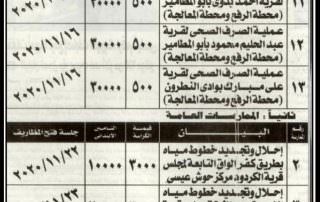 ١١ لقرية أحمد بدوى بأبو المطامير ٥٠٠ ٢٠٠٠٠ ٢٠٢٠/١١/١٦
(محطة الرفع ومحطة المعالجة)
عملية الصرف الصحى لقرية
١٢ عبد الحليم محمود بأبو المطامير ٥٠٠ ٣٠٠٠٠ ٢٠٢٠/١١/١٦
(محطة الرفع ومحطة المعالجة)
عملية الصرف الصحى لقرية
١٣ على مبارك بوادى النطرون ٥٠٠ ٣٠٠٠٠ ٢٠٢٠/١١/١٦
(محطة الرفع ومحطة المعالجة)
ثانيا: الممارسات العامة
رقم البيان قيمة الكراسة التأمين الابتدائى جلسة فتح المظاريف
إحلال وتجديد خطوط مياه
٢ بطريق كفر الواق التابعة لمجلس ٣٠٠ ١٠٠٠٠ ٢٠٢٠/١١/٢٢
قرية الكردود مركز حوش عيسى
إحلال وتجديد خطوط مياه